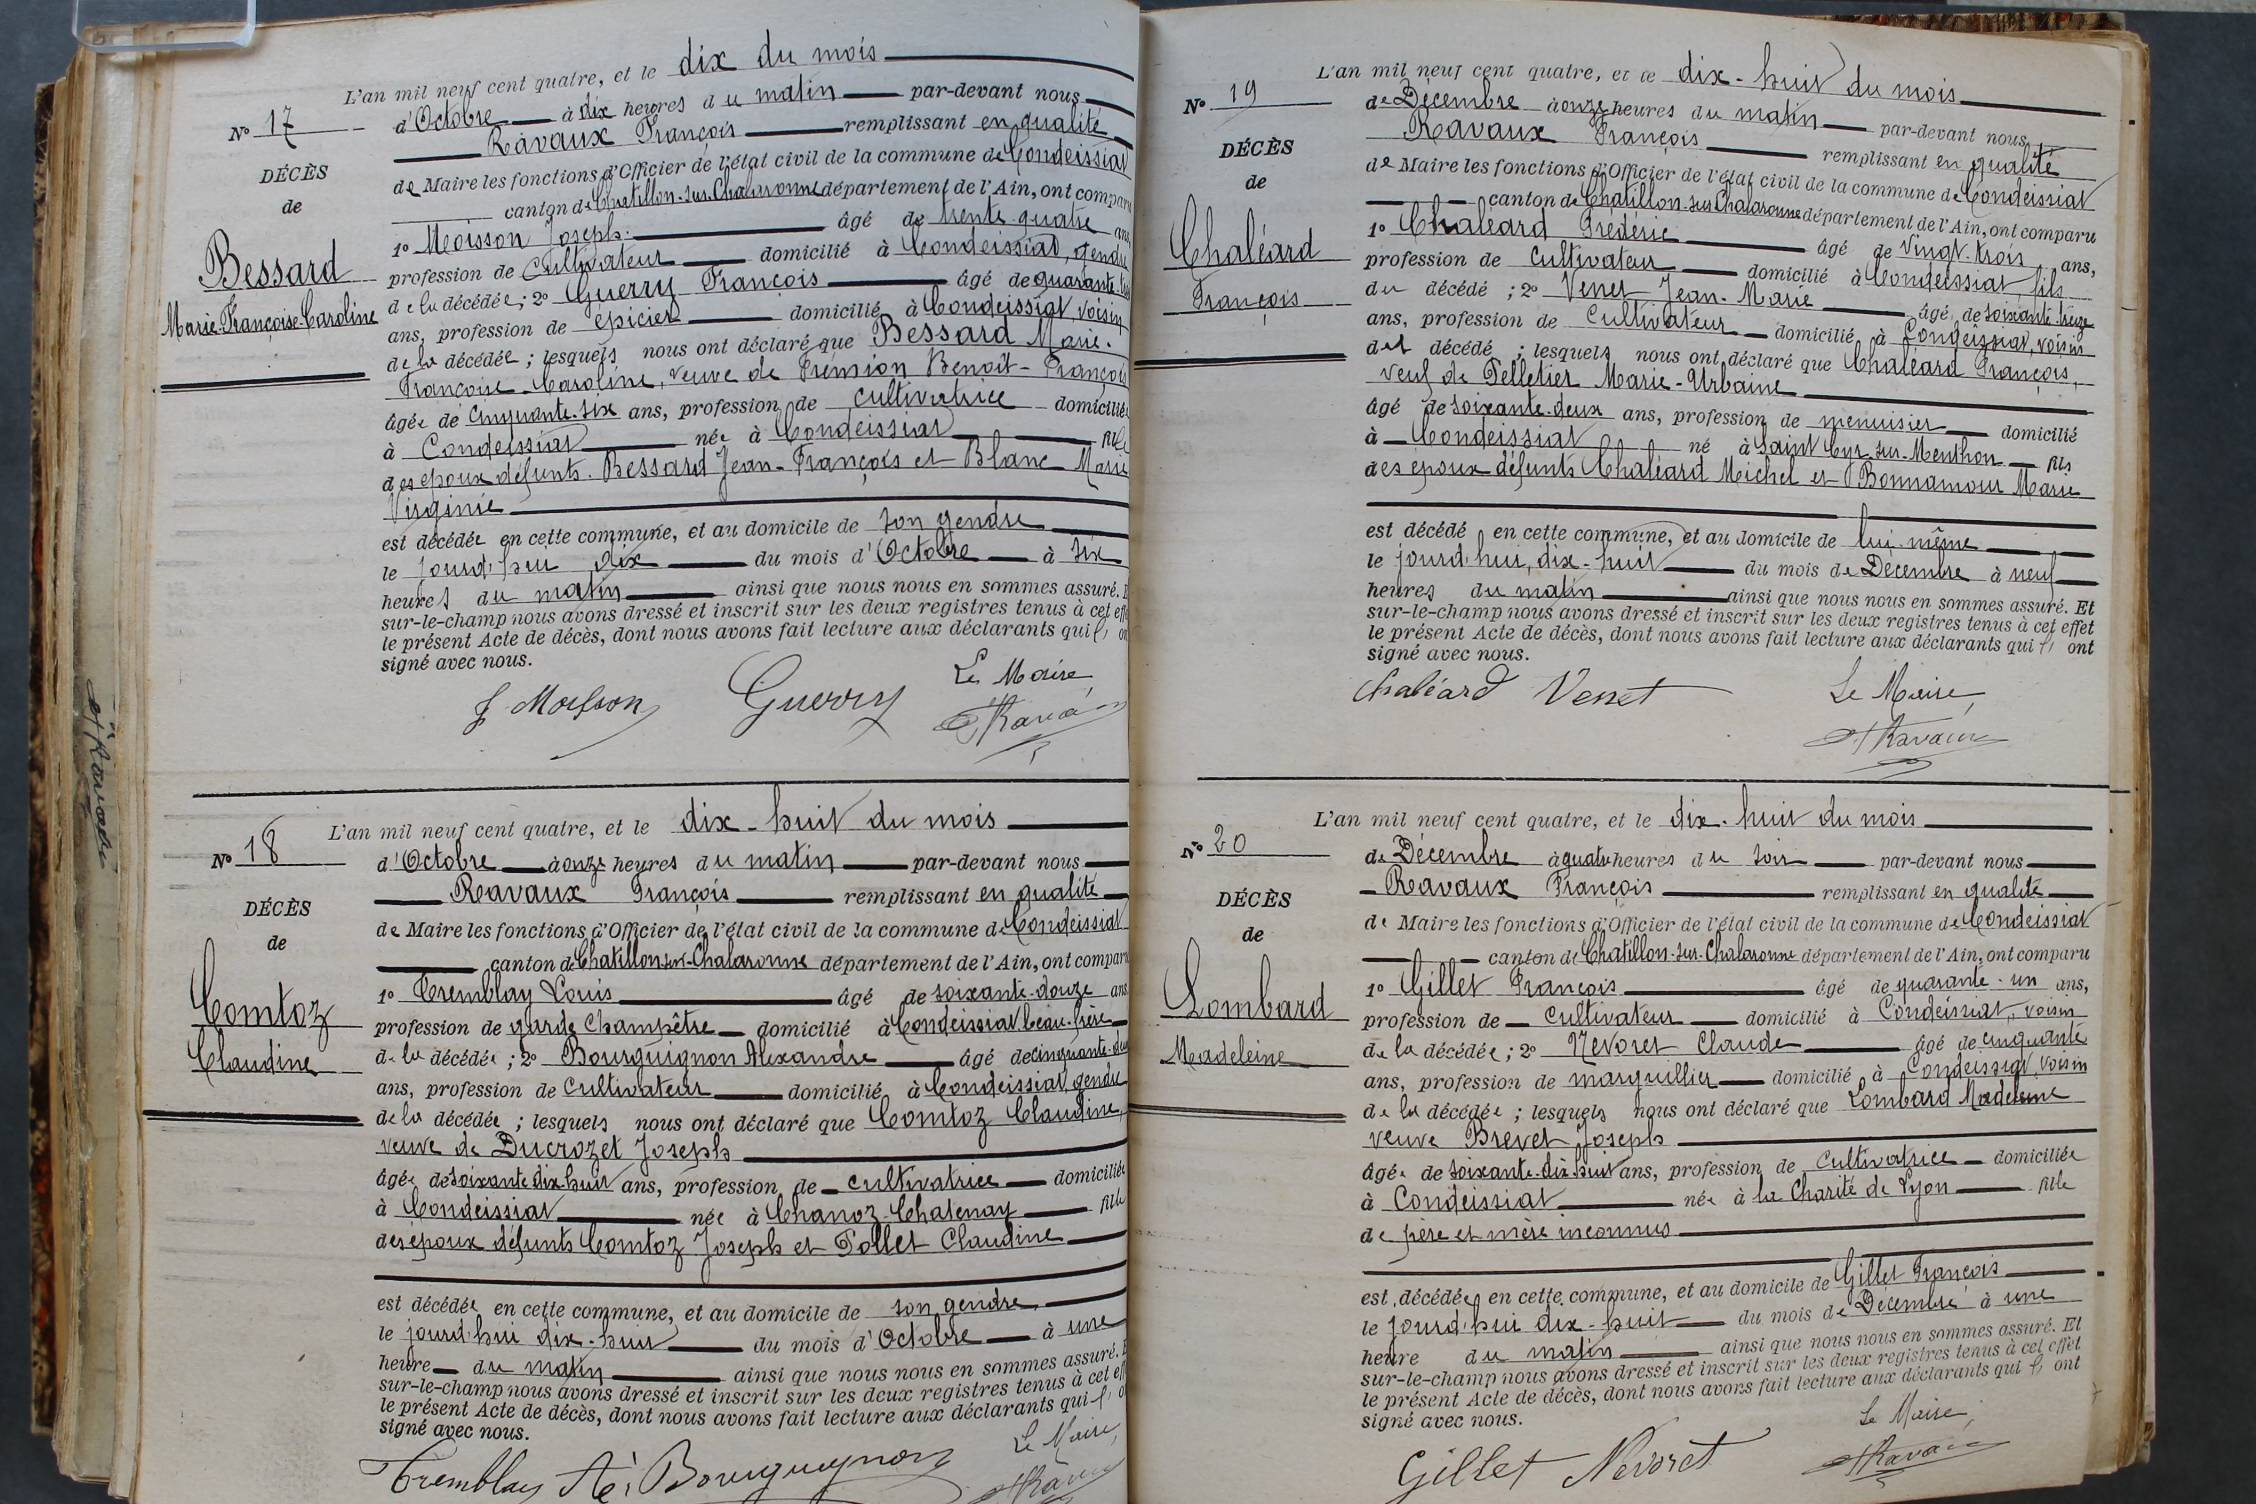 L'an mil neuf cent quatre, et le dix du mois
N° 17
d'Octobre à dix heures du matin par-devant nous
Ravaux François remplissant en qualité
DÉCÈS
de Maire les fonctions d'Officier de l'état civil de la commune de Condeissiat
de
canton de Chatillon-sur-Chalaronne département de l'Ain, ont comparu
1° Moisson Joseph âgé de trente-quatre ans,
Bessard
profession de Cultivateur domicilié à Condeissiat, gendre
Marie-Françoise-Caroline
de la décédée ; 2° Guerry François âgé de quarante-
ans, profession de épicier domicilié à Condeissiat, voisin
de la décédée ; lesquels nous ont déclaré que Bessard Marie-
Françoise-Caroline, veuve de Benoît-François
âgée de cinquante-six ans, profession de cultivatrice domiciliée
à Condeissiat née à Condeissiat fille
des époux défunts Bessard Jean-François et Blanc Marie
Virginie
est décédée en cette commune, et au domicile de son gendre
le jourd'hui dix du mois d'Octobre à six
heures du matin ainsi que nous nous en sommes assuré. E
sur-le-champ nous avons dressé et inscrit sur les deux registres tenus à cet eff
le présent Acte de décès, dont nous avons fait lecture aux déclarants qui on
signé avec nous.
J. Moisson Guerry Le Maire,
L'an mil neuf cent quatre, et le dix-huit du mois
N° 18
d'Octobre à onze heures du matin par-devant nous
Ravaux François remplissant en qualité
DÉCÈS
de Maire les fonctions d'Officier de l'état civil de la commune de Condeissiat
de
canton de Chatillon-sur-Chalaronne département de l'Ain, ont comparu
1° Tremblay Louis âgé de soixante-douze ans
Comtoz
profession de garde Champêtre domicilié à Condeissiat, beau-frère
Claudine
de la décédée ; 2° Bourguignon Alexandre âgé de cinquante-deux
ans, profession de cultivateur domicilié à Condeissiat, gendre
de la décédée ; lesquels nous ont déclaré que Comtoz Claudine,
veuve de Ducrozet Joseph
âgée de soixante-dix-huit ans, profession de cultivatrice domiciliée
à Condeissiat née à Chanoz-Chatenay fille
des époux défunts Comtoz Joseph et Pollet Claudine
est décédée en cette commune, et au domicile de son gendre
le jourd'hui dix-huit du mois d'Octobre à une
heure du matin ainsi que nous nous en sommes assuré. E
sur-le-champ nous avons dressé et inscrit sur les deux registres tenus à cet eff
le présent Acte de décès, dont nous avons fait lecture aux déclarants qui o
signé avec nous.
Le Maire,
Tremblay Bourguignon
L'an mil neuf cent quatre, et le dix-huit du mois
N° 19
de Décembre à onze heures du matin par-devant nous
Ravaux François remplissant en qualité
DÉCÈS
de Maire les fonctions d'Officier de l'état civil de la commune de Condeissiat
de
canton de Chatillon-sur-Chalaronne département de l'Ain, ont comparu
1° Chaléard Frédéric âgé de vingt-trois ans,
Chaléard
profession de cultivateur domicilié à Condeissiat, fils
François
du décédé ; 2° Venet Jean-Marie âgé de soixante-treize
ans, profession de Cultivateur domicilié à Condeissiat, voisin
du décédé ; lesquels nous ont déclaré que Chaléard François,
veuf de Pelletier Marie-Urbaine
âgé de soixante-deux ans, profession de menuisier domicilié
à Condeissiat né à Saint Cyr-sur-Menthon fils
des époux défunts Chaléard Michel et Bonnamour Marie
est décédé en cette commune, et au domicile de lui-même
le jourd'hui, dix-huit du mois de Décembre à neuf
heures du matin ainsi que nous nous en sommes assuré. Et
sur-le-champ nous avons dressé et inscrit sur les deux registres tenus à cet effet
le présent Acte de décès, dont nous avons fait lecture aux déclarants qui ont
signé avec nous.
Chaléard Venet Le Maire,
L'an mil neuf cent quatre, et le dix-huit du mois
N° 20
de Décembre à quatre heures du soir par-devant nous
Ravaux François remplissant en qualité
DÉCÈS
de Maire les fonctions d'Officier de l'état civil de la commune de Condeissiat
de
canton de Chatillon-sur-Chalaronne département de l'Ain, ont comparu
1° Gillet François âgé de quarante-un ans,
Lombard
profession de cultivateur domicilié à Condeissiat, voisin
Madeleine
de la décédée ; 2° Nevoret Claude âgé de cinquante
ans, profession de marguillier domicilié à Condeissiat, voisin
de la décédée ; lesquels nous ont déclaré que Lombard Madeleine
veuve Brevet Joseph
âgée de soixante-dix-huit ans, profession de cultivatrice domiciliée
à Condeissiat née à la Charité de Lyon fille
de père et mère inconnus
est décédée en cette commune, et au domicile de Gillet François
le jourd'hui dix-huit du mois de Décembre à une
heure du matin ainsi que nous nous en sommes assuré. Et
sur-le-champ nous avons dressé et inscrit sur les deux registres tenus à cet effet
le présent Acte de décès, dont nous avons fait lecture aux déclarants qui ont
signé avec nous.
Le Maire,
Gillet Nevoret